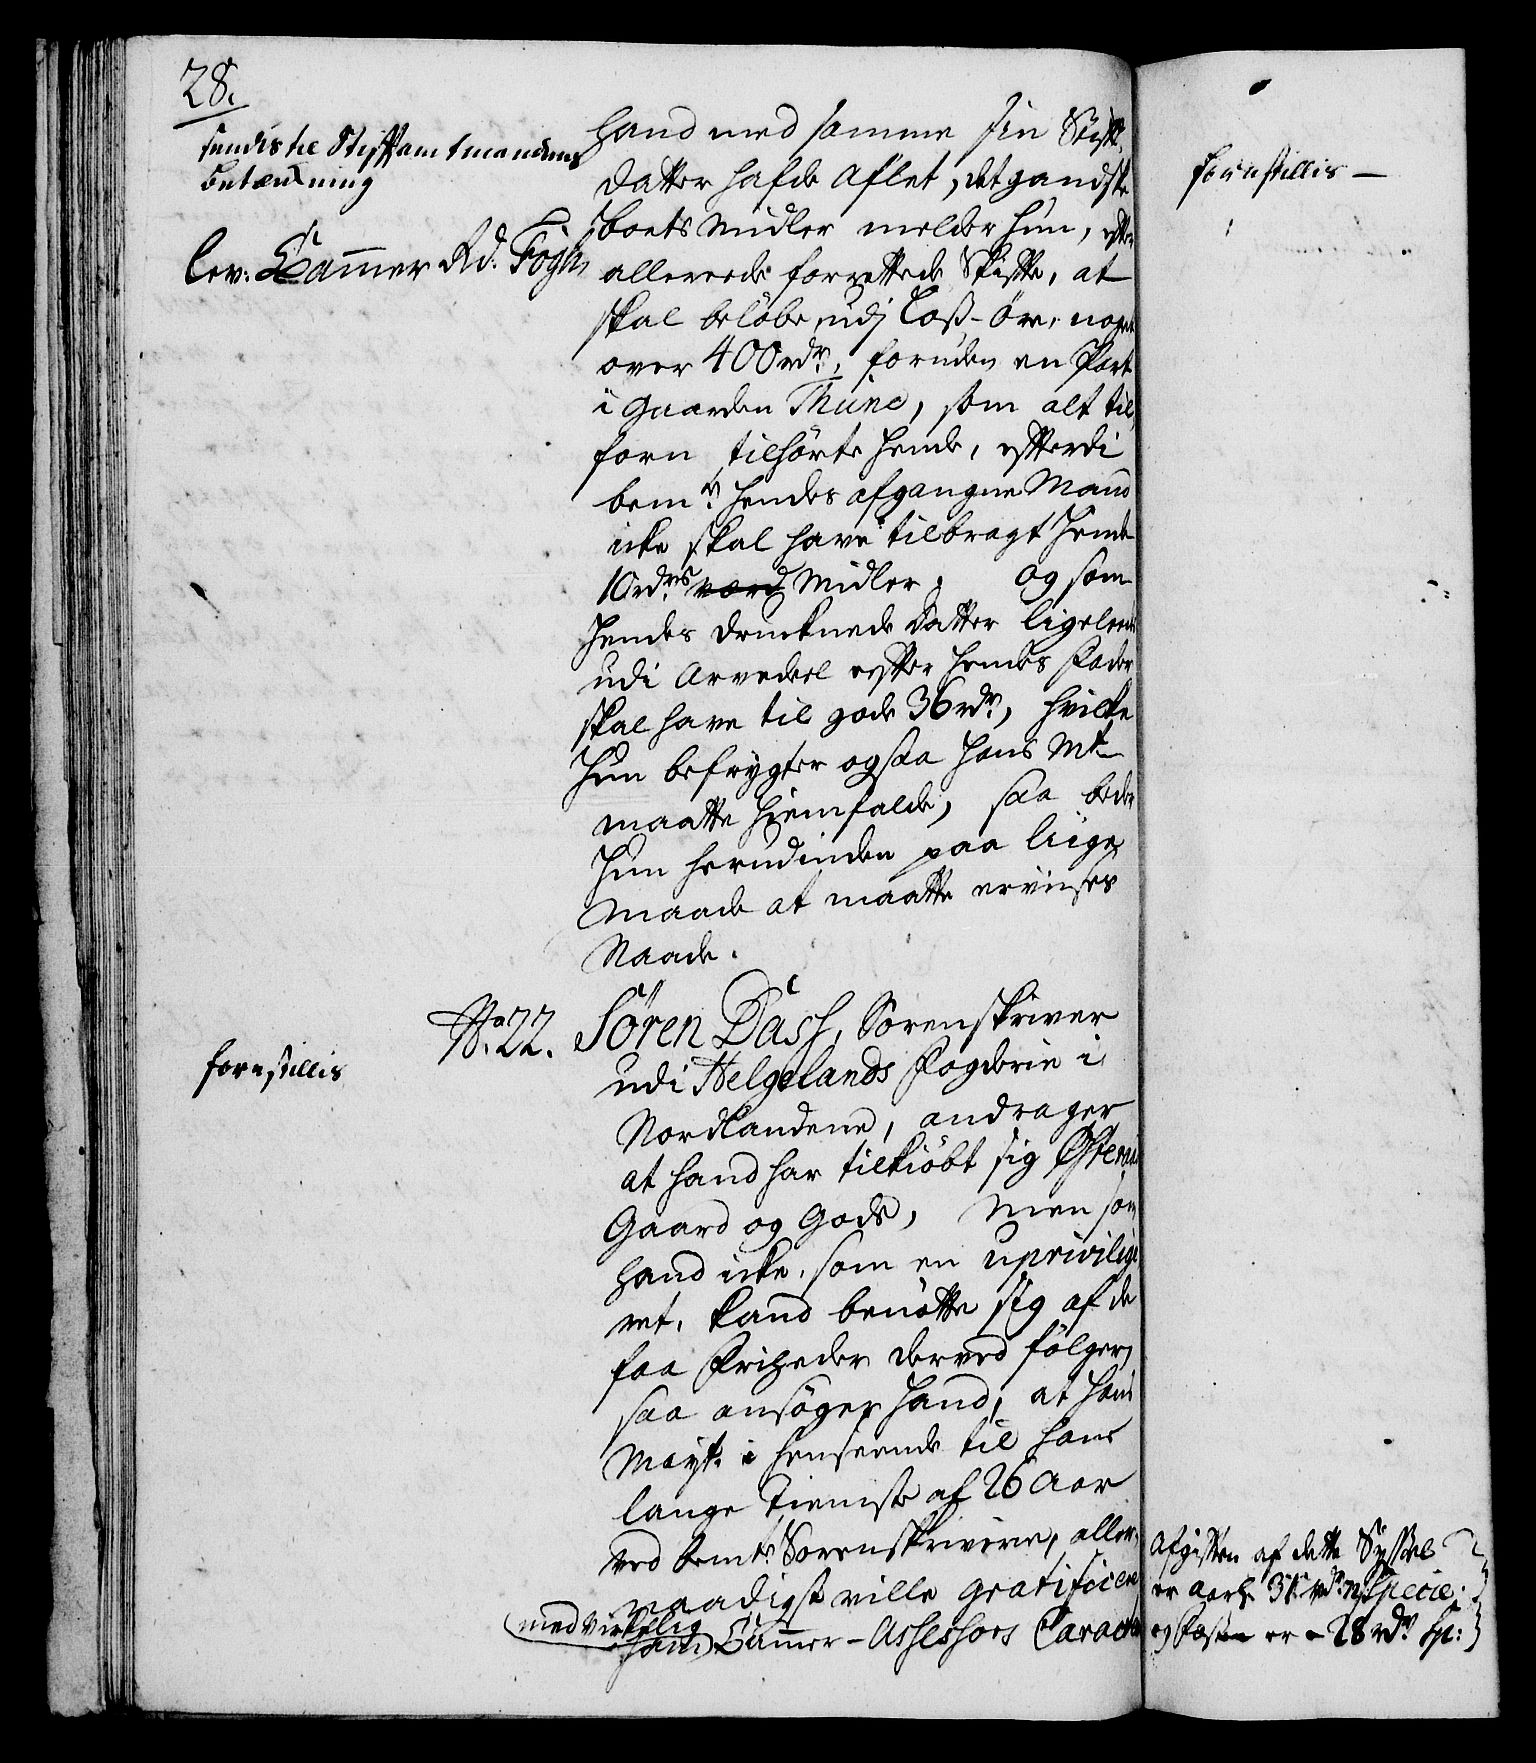 28.
sendis til Stiftamtmandens
betænkning
lev: Cammer Rd. Fogh
hand med samme sin Stif-
datter hafde aflet, det gandske
boets Midler melder hun, efter
allereede forrettede Skifte, at
skal beløbe udj Løß-Øre, noget
over 400 rdr, foruden en Part
i Gaarden Thüne, som alt til-
forn tilhørte hende, efterdi
bemte hendes afgangne Mand
icke skal have tilbragt hende
10 rdrs værd Midler; og som
hendes druknede Datter ligeleedes
udi Arvedeel efter hendes Fader
skal have til gode 36 rdr, hvilke
hun befrygter ogsaa hans Mt
maatte hiemfalde, saa beder
hun herudinden paa liige
Maade at maatte erviises
Naade.
forestillis
No. 22. Sören Dass, Sorenskriver
udi Helgelands Fogderie i
Nordlandene, andrager
at hand har tilkiöbt sig
Gaard og Gods, Men som
hand icke, som en uprivilige
ret, kand benötte sig af de
faa Friheder derved fölger,
saa ansöger hand, at hans
Mayt. i henseende til hans
lange Tieniste af 26 Aar
ved bemte Sorenskriverie, aller-
naadigst ville gratificere
med virkelig
ham Cammer-Assessors Caracter
forestillis
Afgiften af dette Syssel
er aarl. rdr Specie;
og er - 28 rdr Sp: